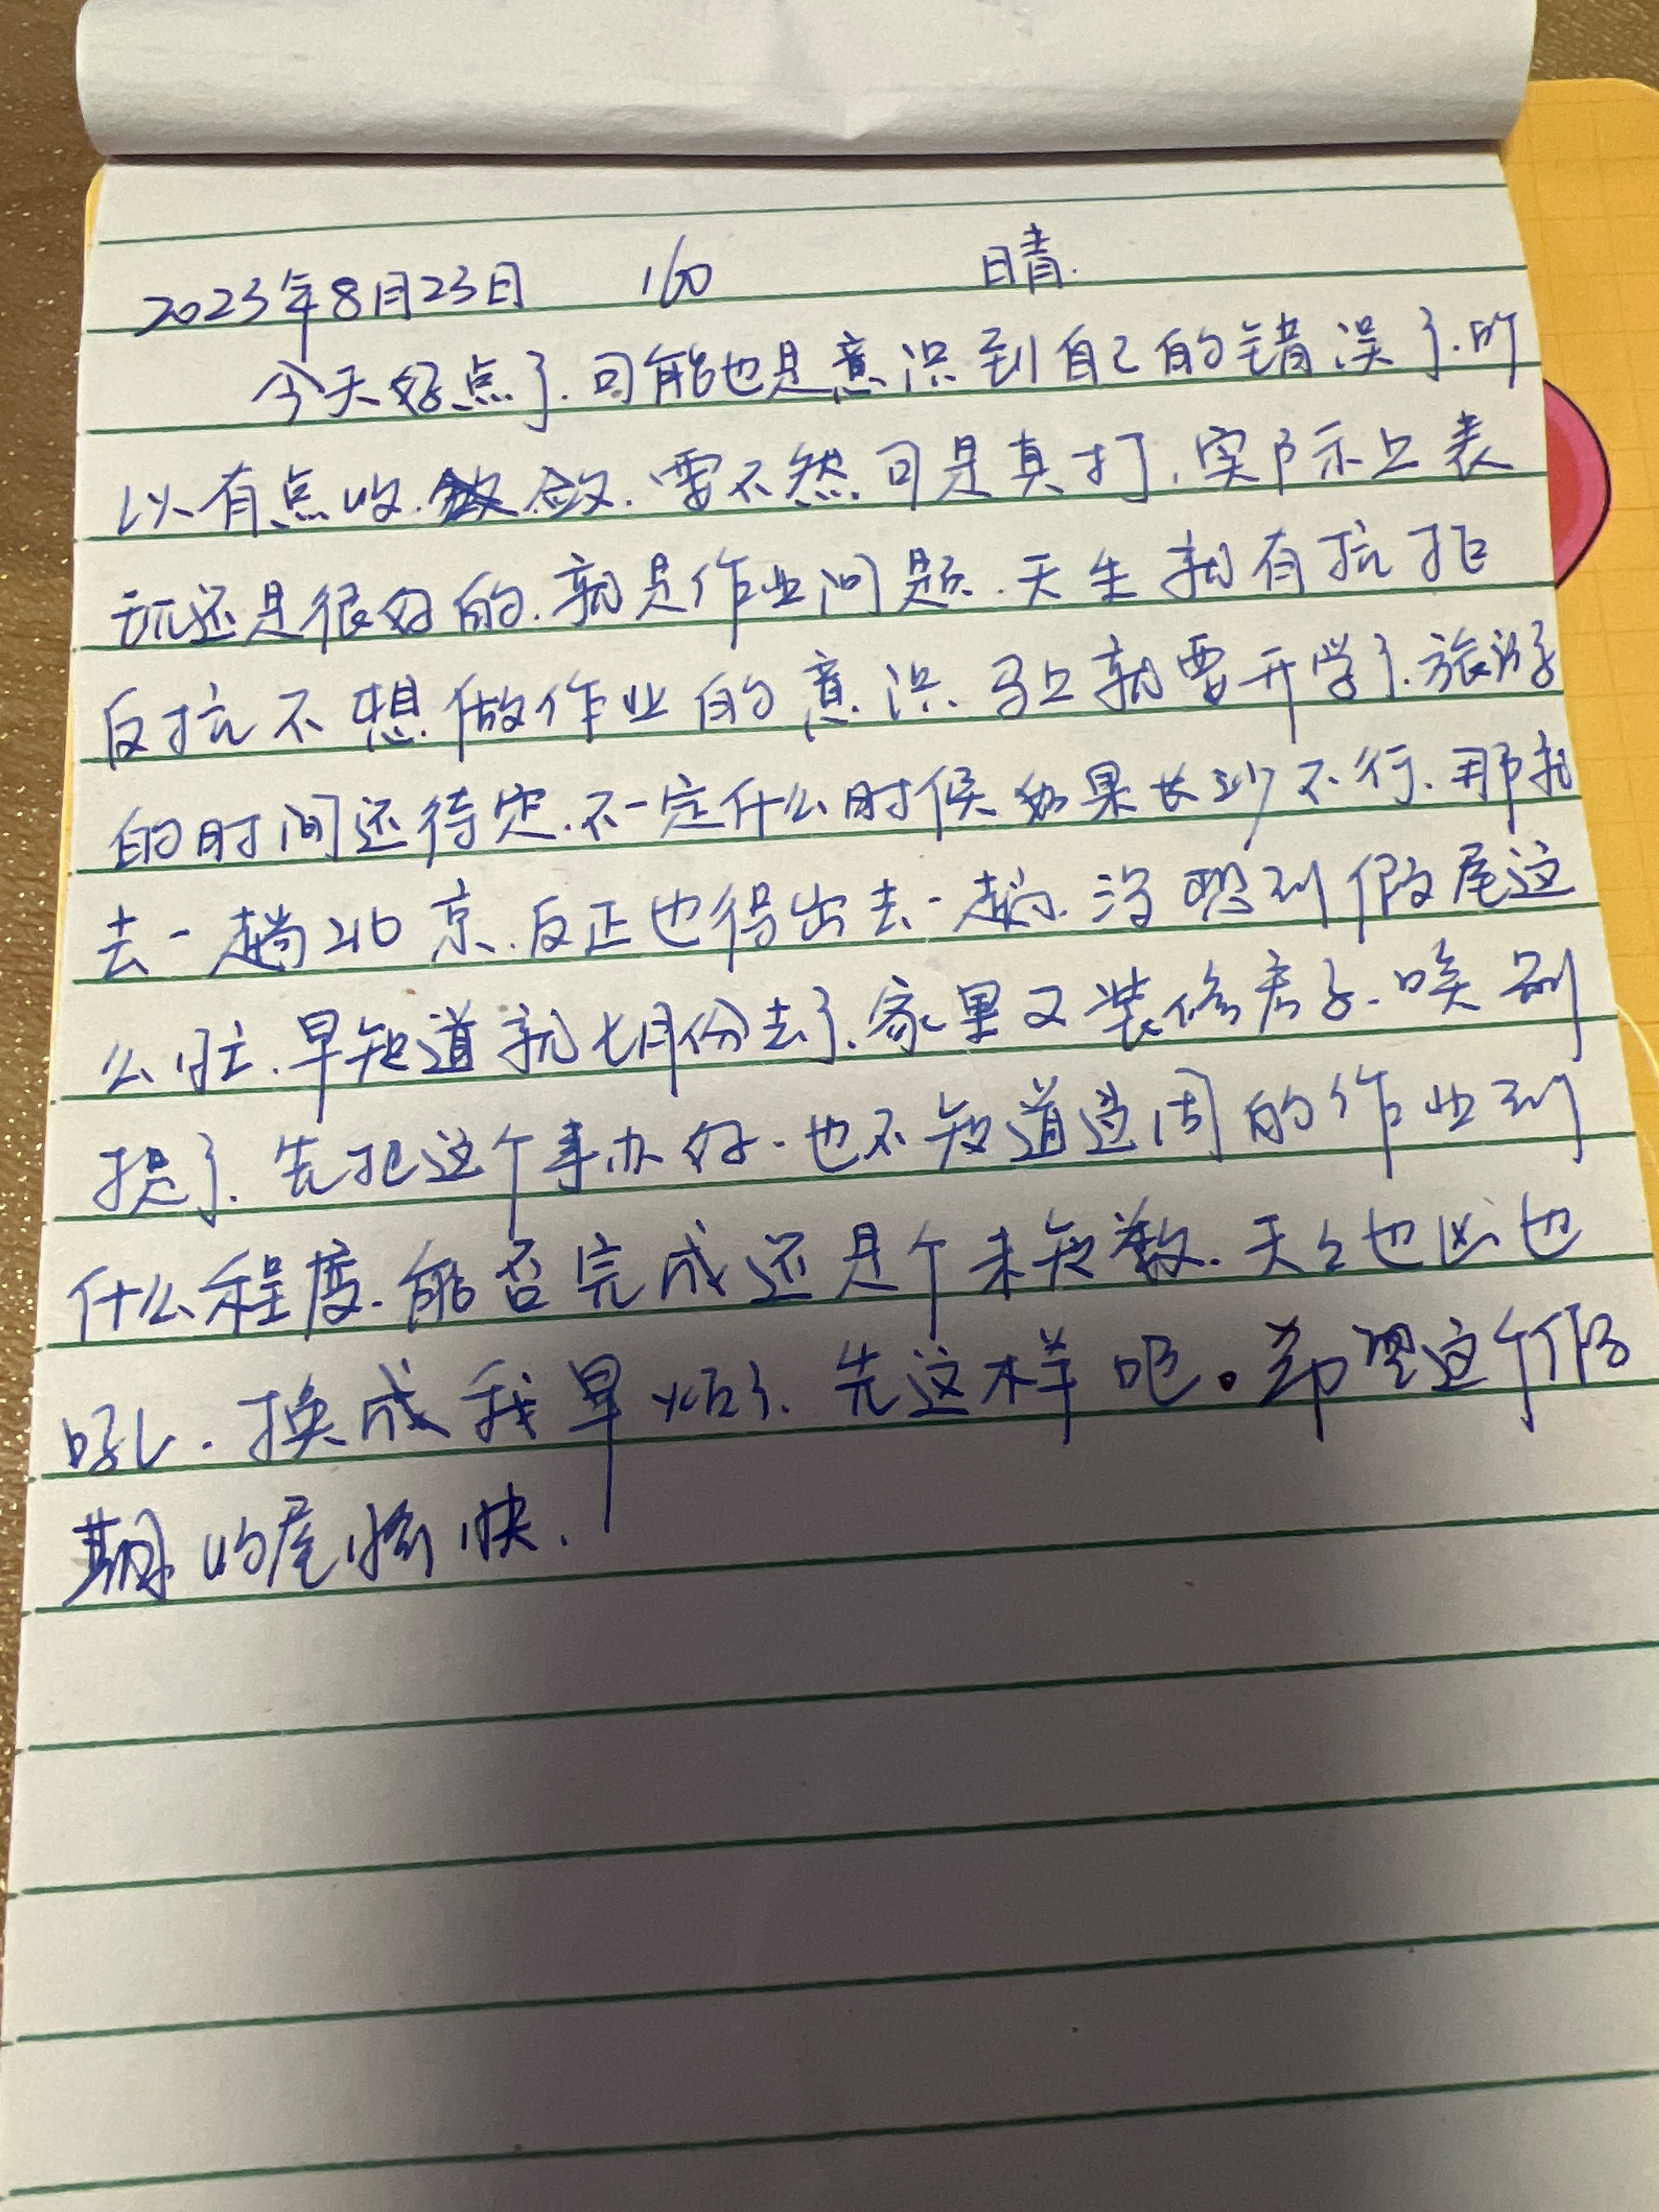 2023年8月23日 160 晴.
今天好点了.可能也是意识到自己的错误了.所
以有点收敛.要不然可是真打.实际上表
现还是很好的.就是作业问题.天生就有抗拒
反抗不想做作业的意识.马上就要开学了.旅游
的时间还待定.不一定什么时候.如果长沙不行.那就
去一趟北京.反正也得出去一趟.没想到假尾这
么忙.早知道就七月份去了.家里又装修房子.唉别
提了.先把这个事办好.也不知道这周的作业到
什么程度.能否完成还是个未知数.天天也凶也
吼.换成我早烦了.先这样吧。希望这个假
期的尾愉快.